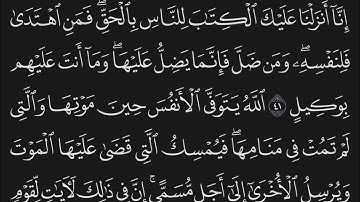 إِنَّآ أَنزَلْنَا عَلَيْكَ ٱلْكِتَٰبَ لِلنَّاسِ بِٱلْحَقِّۖ فَمَنِ ٱهْتَدَىٰ
فَلِنَفْسِهِۦۖ وَمَن ضَلَّ فَإِنَّمَا يَضِلُّ عَلَيْهَاۖ وَمَآ أَنتَ عَلَيْهِم
بِوَكِيلٍ ٤١ ٱللَّهُ يَتَوَفَّى ٱلْأَنفُسَ حِينَ مَوْتِهَا وَٱلَّتِى
لَمْ تَمُتْ فِى مَنَامِهَاۖ فَيُمْسِكُ ٱلَّتِى قَضَىٰ عَلَيْهَا ٱلْمَوْتَ
وَيُرْسِلُ ٱلْأُخْرَىٰٓ إِلَىٰٓ أَجَلٍ مُّسَمًّىۚ إِنَّ فِى ذَٰلِكَ لَءَايَٰتٍ لِّقَوْمٍ